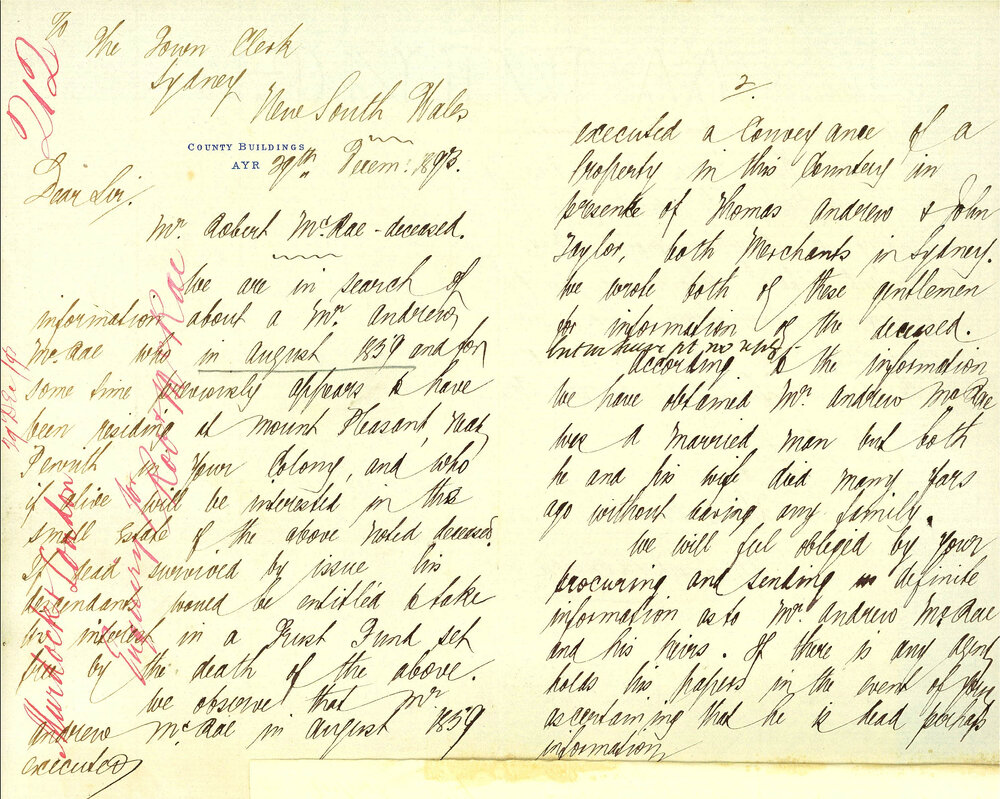 To
The Town Clerk
Sydney
New South Wales
COUNTY BUILDINGS
AYR
29th Decem: 1893.
Dear Sir.
Mr. Robert McRae - deceased.
We are in search of
information about a Mr. Andrew
McRae who in August 1859 and for
some time previously appears to have
been residing at Mount Pleasant, near
Penrith in your Colony, and who
if alive will be interested in the
small Estate of the above noted deceased.
If dead survived by issue his
descendants would be entitled to take
his interest in a Trust Fund set
free by the death of the above.
We observe that Mr
Andrew McRae in August 1859
executed
212
Murdochs London
Enquiry for Robt McRae
2.
executed a Conveyance of a
Property in this Country in
presence of Thomas Andrew & John
Taylor, both Merchants in Sydney.
We wrote both of these gentlemen
for information of the deceased.
but no reply
According to the information
we have obtained Mr. Andrew McRae
was a married man but both
he and his wife died many years
ago without having any family.
We will feel obliged by your
procuring and sending definite
information as to Mr. Andrew McRae
and his heirs. If there is any agent
holds his papers in the event of your
ascertaining that he is dead perhaps
information